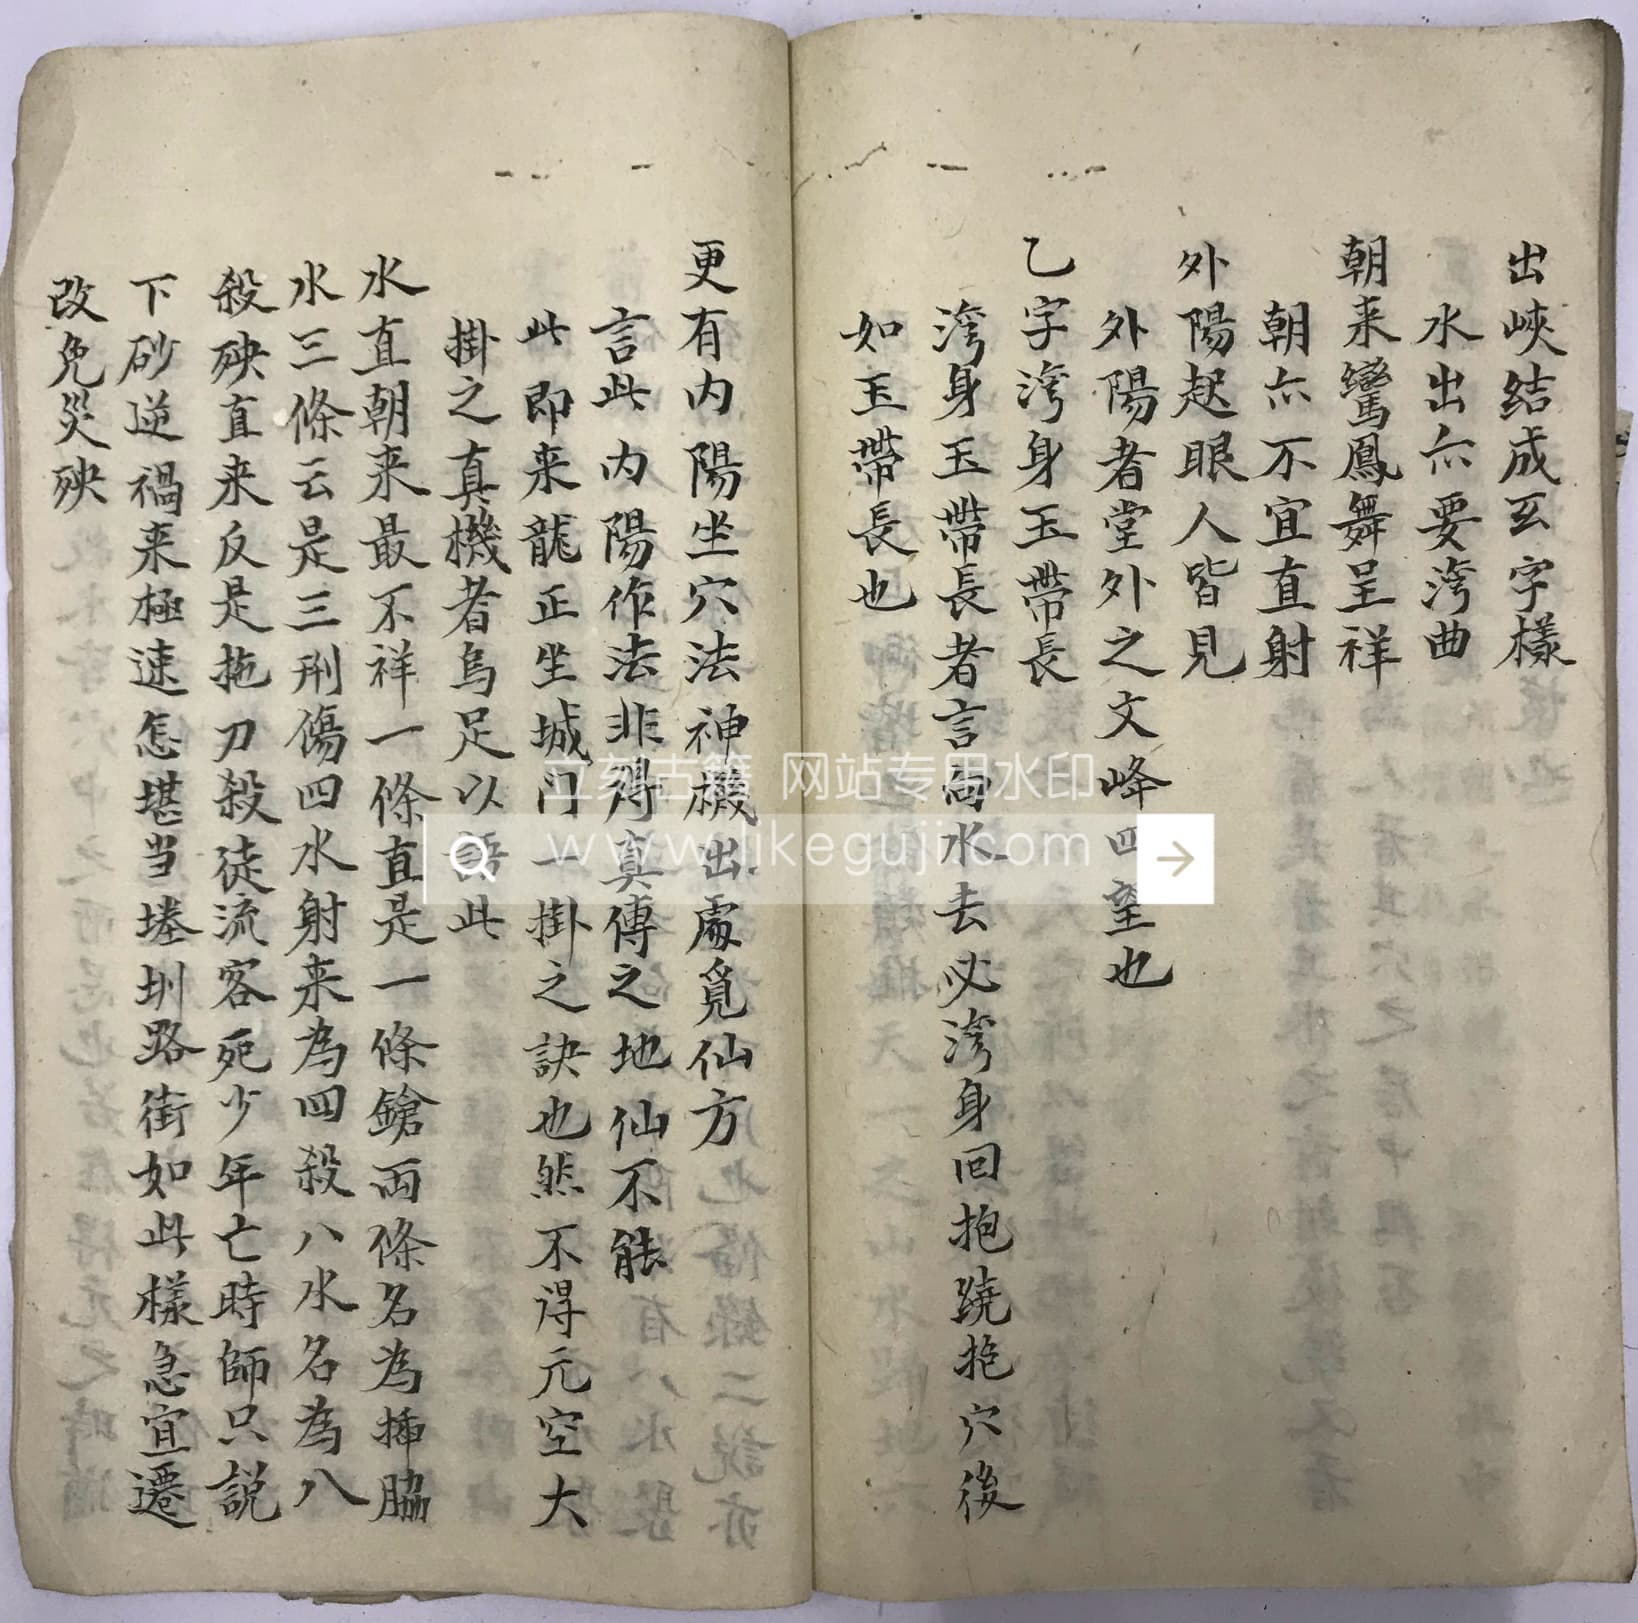 出峽结成玄字樣
水出亦要湾曲
朝来鸞鳳舞呈祥
朝亦不宜直射
外陽起眼人皆見
外陽者堂外之文峰四望也
乙字湾身玉帶長
湾身玉帶長者言向水去必湾身回抱蹺抱穴後
如玉帶長也
更有内陽坐穴法神機出處覓仙方
言此内陽作法非得真傳之地仙不能
此即来龍正坐城门一掛之訣也然不得元空大
掛之真機者烏足以語此
水直朝来最不祥一條直是一條鎗两條名為揷脇
水三條云是三刑傷四水射来為四殺八水名為八
殺殃直来反是拖刀殺徒流客死少年亡時師只説
下砂逆禍来極速怎堪当埢圳路街如此樣急宜遷
改免災殃
立刻古籍 网站专用水印
www.likeguji.com